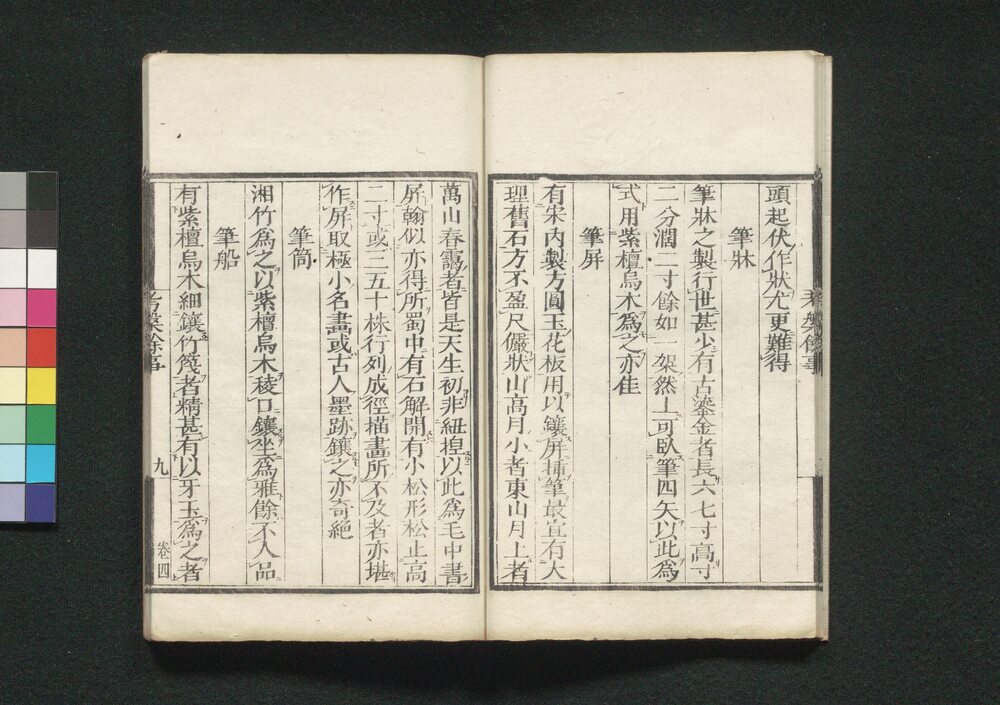 頭起伏作狀尤更難得
筆牀
筆牀之製行世甚少有古鎏金者長六七寸高寸
二分濶二寸餘如一架然上可臥筆四矢以此爲
式用紫檀烏木爲之亦佳
筆屏
有宋内製方圓玉花板用以鑲屏揷筆最宜有大
理舊石方不盈尺儼狀山高月小者東山月上者
萬山春靄者皆是天生初非紐揑以此爲毛中書
屏翰似亦得所蜀中有石解開有小松形松止高
二寸或三五十株行列成徑描畫所不及者亦堪
作屏取極小名畫或古人墨跡鑲之亦奇絶
筆筒
湘竹爲之以紫檀烏木稜口鑲坐爲雅餘不入品
筆船
有紫檀烏木細鑲竹篾者精甚有以牙玉爲之者
考槃餘事
九
卷四